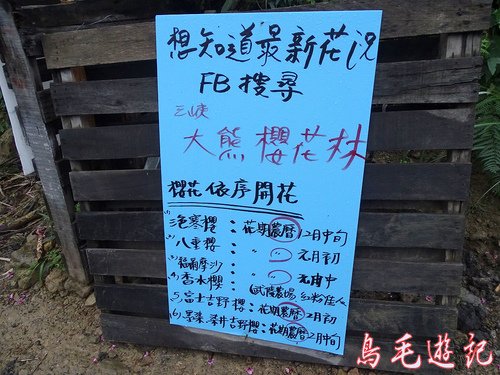 想知道最新花況
FB搜尋
三峽
大熊櫻花林
櫻花依序開花
(1)浥寒櫻:花期農曆12月中旬
(2)八重櫻: " " 元月初
(3)福爾摩沙 " " 元月中
(4)香水櫻: (武陵農場 紅粉佳人
(5)富士吉野櫻:花期農曆2月初
(6)墨染、染井吉野櫻:花期農曆2月中旬
鳥毛遊記